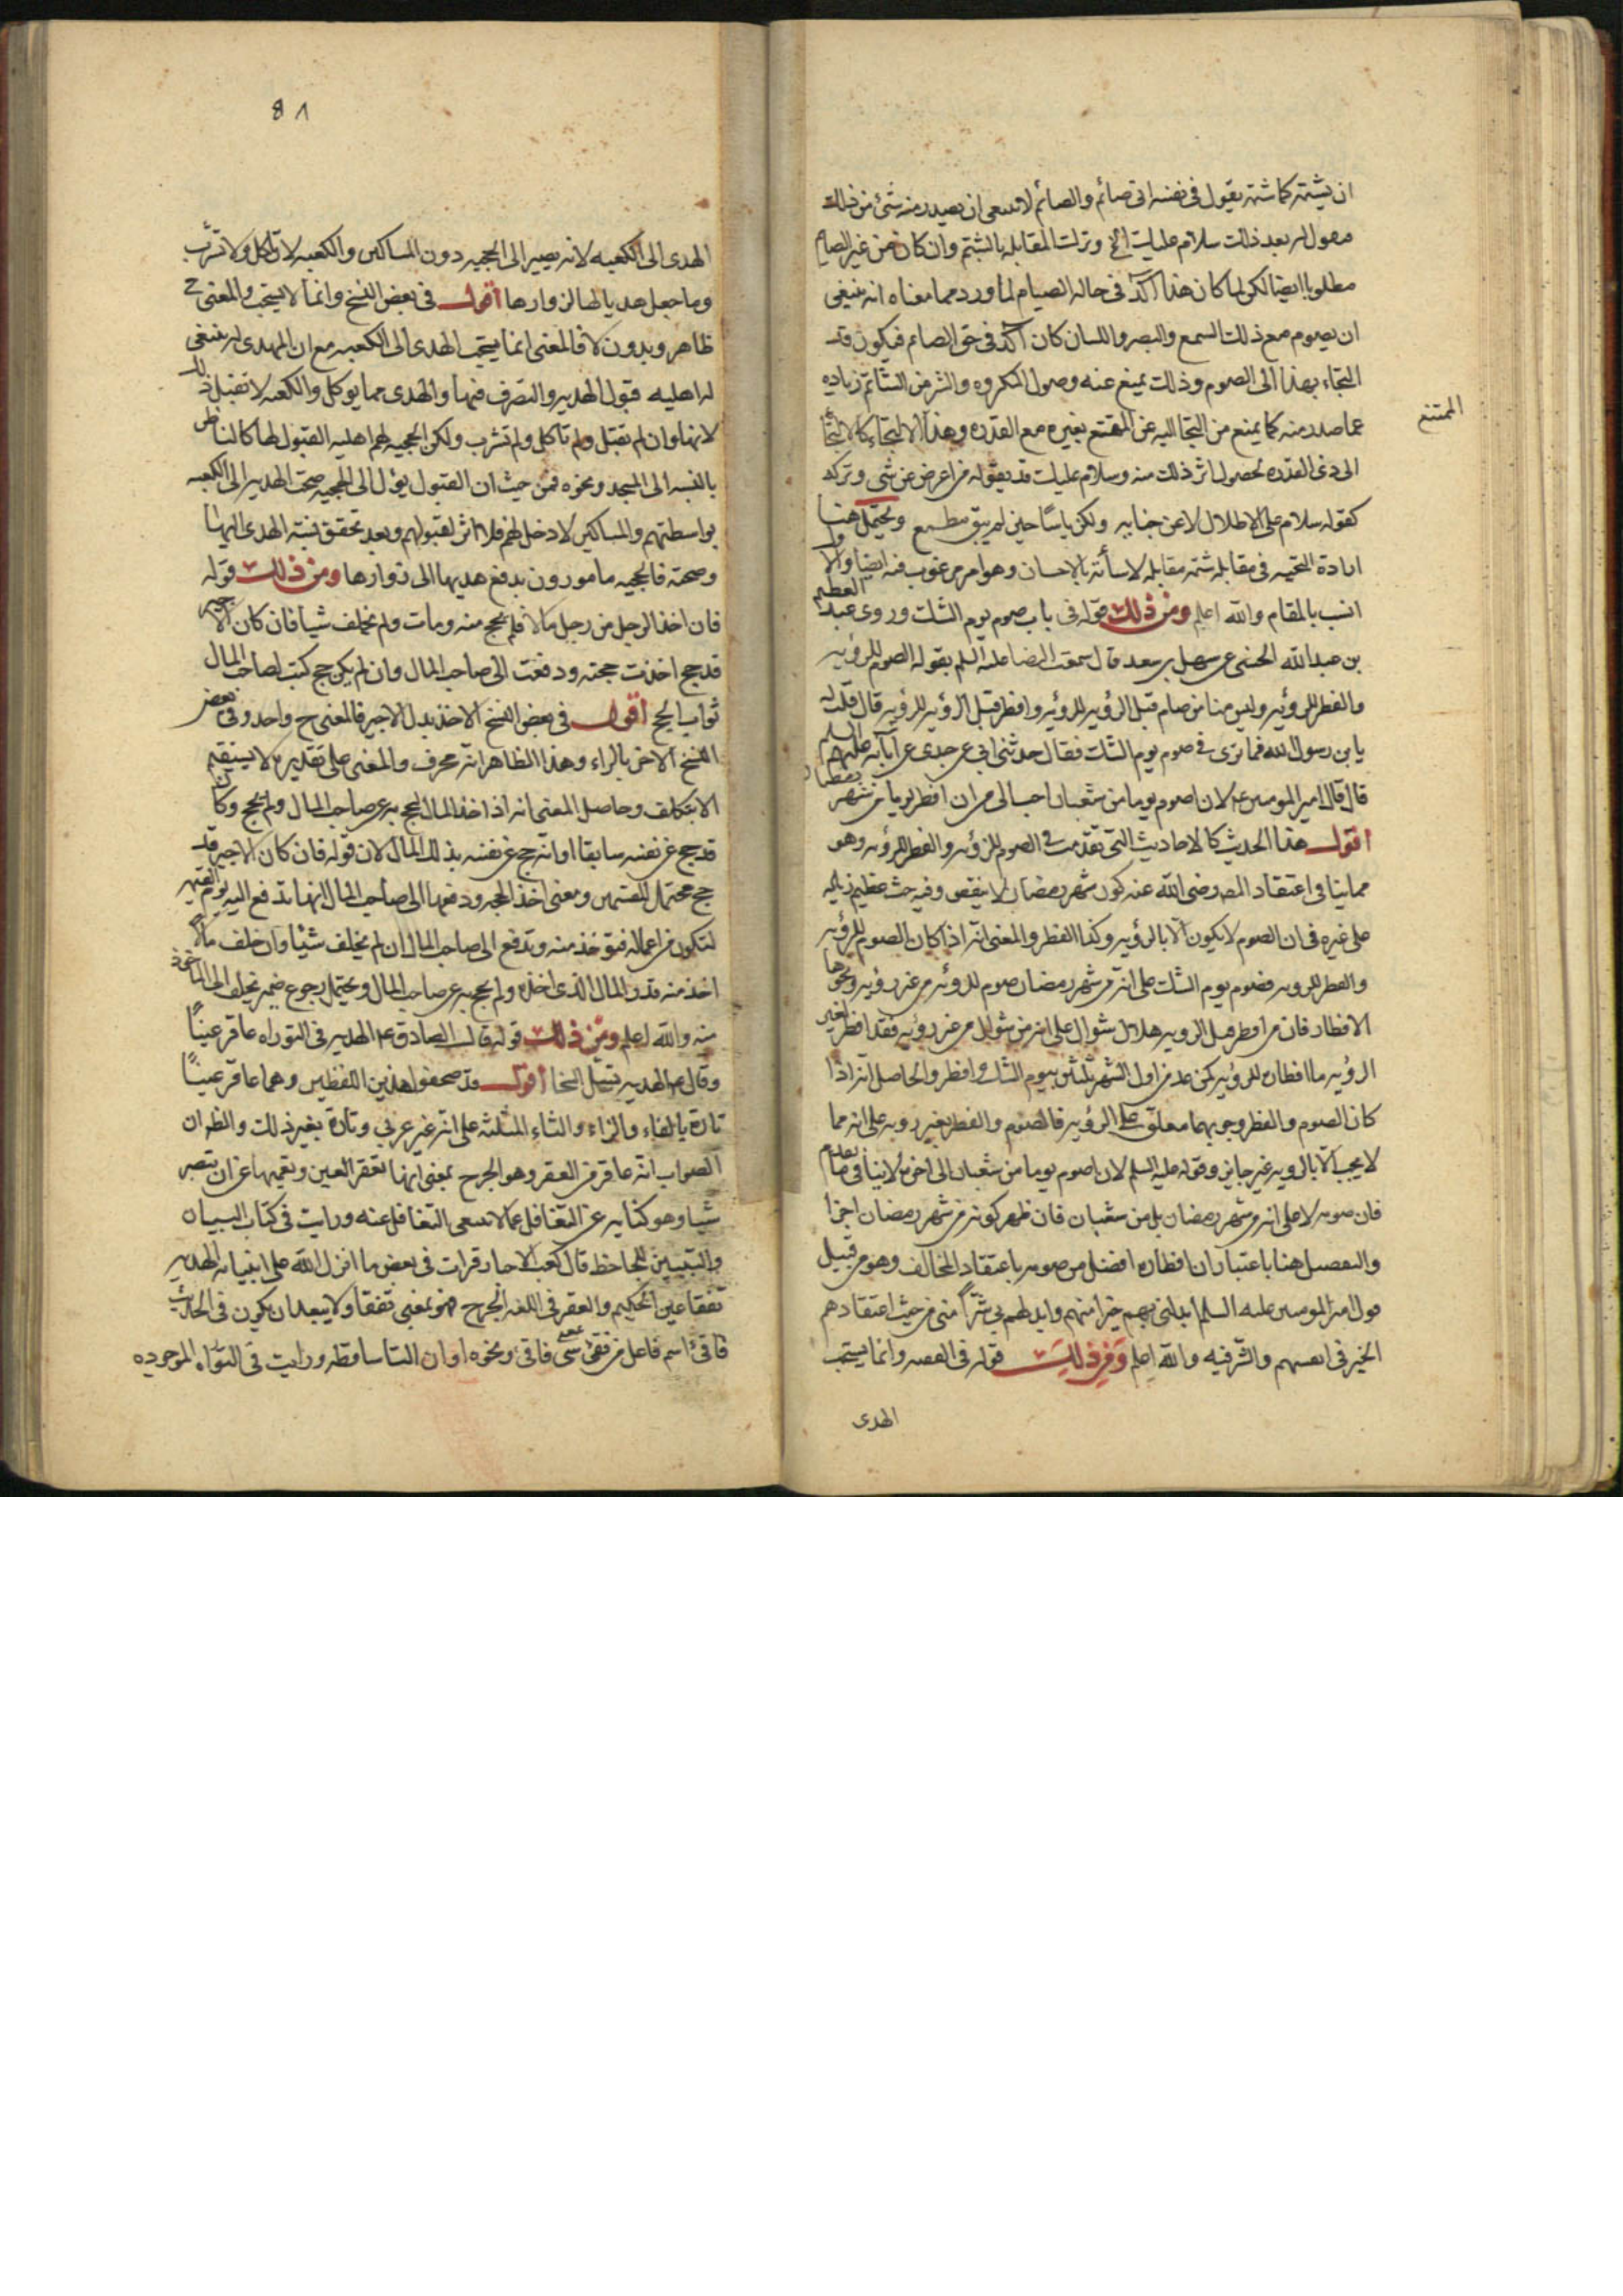 ان يشتمه كما شتمه يقول في نفسه اني صائم والصائم لا ينبغي ان يصدر منه شئ من ذلك
فيقول له بعد ذلك سلام عليك الخ وترك المقابله بالشتم وان كان من غير الصايم
مطلوبا ايضا لكن لما كان هذا آكد في حاله الصيام لما ورد مما معناه انه ينبغي
ان يصوم مع ذلك السمع والبصر واللسان كان آكد في حق الصائم فيكون قد
التجاء بهذا الى الصوم وذلك يمنع عنه وصول المكروه والشر من الشاتم زياده
عما صدر منه كما يمنع من التجا اليه عن الممتنع بغيره مع القدره وهذا الالتجاء كالالتجا
الممتنع
الى ذي القدره لحصول اثر ذلك منه وسلام عليك قد يقوله من اعرض عن شي وتركه
كقوله سلام على الاطلال لا عن جنايه ولكن ياسا حين لم يبق مطمع ويحتمل هنا
ارادة التحيه في مقابله شتمه مقابله لاسأته بالاحسان وهو امر مرغوب فيه ايضا والاول
انسب بالمقام والله اعلم ومن ذلك قوله في باب صوم يوم الشك وروى عبد العظيم
بن عبد الله الحسني عن سهل بن سعد قال سمعت الرضا عليه السلم يقول الصوم للرؤيه
والفطر للرؤيه وليس منا من صام قبل الرؤيه للرؤيه وافطر قبل الرؤيه للرؤيه قال قلت له
يا بن رسول الله فما ترى في صوم يوم الشك فقال حدثني ابي عن جدي عن آبائه عليهم السلم
قال قال امير المومنين ع لان اصوم يوما من شعبان احب الى من ان افطر يوما من شهر رمضان
اقول هذا الحديث كالاحاديث التي تقدمت في الصوم للرؤيه والفطر للرؤيه وهو
مما ينافي اعتقاد المص رضي الله عنه كون شهر رمضان لا ينقص وفيه حث عظيم زياده
على غيره في ان الصوم لا يكون الا بالرؤيه وكذا الفطر والمعنى انه اذا كان الصوم للرؤيه
والفطر للرويه فصوم يوم الشك على انه من شهر رمضان صوم للرؤيه من غير رؤيه ونحوها
الافطار فان من افطر قبل الرويه هلال شوال على انه من شوال من غير رؤيه فقد افطر لغير
الرؤيه ما افطان للرؤيه كمن عد من اول الشهر ثلثين بيوم الشك وافطر والحاصل انه اذا
كان الصوم والفطر وجوبهما معلق على الرؤيه فالصوم والفطر بغير رويه على انه مما
لا يجب الا بالرويه غير جايز وقوله عليه السلم لان اصوم يوما من شعبان الى اخره لا ينافي ما تقدم
فان صومه لا على انه من شهر رمضان بل من شعبان فان ظهر كونه من شهر رمضان اجزا
والتفصيل هنا باعتبار ان افطاره افضل من صومه باعتقاد المخالف وهو من قبيل
قول امير المومنين عليه السلم ابدلني بهم خيرا منهم وابدلهم بي شرا مني من حيث اعتقادهم
الخير في انفسهم والشر فيه والله اعلم ومن ذلك قوله في الفصه وانما يستحب
الهدى
٨١
الهدى الى الكعبه لانه يصير الى الحجبه دون المساكين والكعبه لا تاكل ولا تشرب
وما جعل هديا لها لزوارها اقول في بعض النسخ وانما لا يستحب والمعنى ح
ظاهر وبدون لا فالمعنى انما يستحب الهدى الى الكعبه مع ان المهدى له ينبغي
له اهليه قبول الهديه والتصرف فيها والهدى مما يوكل والكعبه لا تقبل ذلك
لانها وان لم تقبل ولم تاكل ولم تشرب ولكن الحجبه لهم اهليه القبول لها كالناظر
بالنسبه الى المسجد ونحوه فمن حيث ان القبول يؤل الى الحجبه صحت الهديه الى الكعبه
بواسطتهم والمساكين لا دخل لهم فلا اثر لقبولهم وبعد تحقق نسبه الهدى اليها
وصحته فالحجبه مامورون بدفع هديها الى زوارها ومن ذلك قوله
فان اخذ الرجل من رجل مالا فلم يحج عنه ومات ولم يخلف شيا فان كان الاجير
قد حج اخذت حجته ودفعت الى صاحب المال وان لم يكن حج كتب لصاحب المال
ثواب الحج اقول في بعض النسخ الاخذ بدل الاجير فالمعنى ح واحد وفي بعض
النسخ الاخر بالراء وهذا الظاهر انه محرف والمعنى على تقديره لا يستقيم
الا بتكلف وحاصل المعنى انه اذا اخذ المال ليحج به عن صاحب المال ولم يحج وكان
قد حج عن نفسه سابقا او انه حج عن نفسه بذلك المال لان قوله فان كان الاجير قد
حج محتمل للقسمين ومعنى اخذ الحجه ودفعها الى صاحب المال انها تدفع اليه يوم القيمه
لتكون من اعماله فتؤخذ منه وتدفع الى صاحب المال ان لم يخلف شيئا وان خلف مالا
اخذ منه قدر المال الذي اخذه ولم يحج به عن صاحب المال ويحتمل رجوع ضمير يخلف الى الماخوذ
منه والله اعلم ومن ذلك قوله قال الصادق ع الهديه في التوراه عاقر عينا
وقال ع الهديه تسل السخا اقول قد صحفوا هذين اللفظين وهما عاقر عينا
تارة بالفاء والزاء والثاء المثلثه على انه غير عربي وتارة بغير ذلك والظاهر ان
الصواب انه عاقر من العقر وهو الجرح بمعنى انها تعقر العين وتعميها عن ان تبصر
شيا وهو كنايه عن التغافل عما لا ينبغي التغافل عنه ورايت في كتاب البيان
والتبيين للجاحظ قال كعب الاحبار قرات في بعض ما انزل الله على انبيائه الهديه
تفقا عين الحكيم والعقر في اللغه الجرح فهو بمعنى تفقا ولا يبعد ان يكون في الحديث
فاقئ اسم فاعل من فقئ فاقئ ونحوه او ان التا ساقطه ورايت في التوراه الموجوده